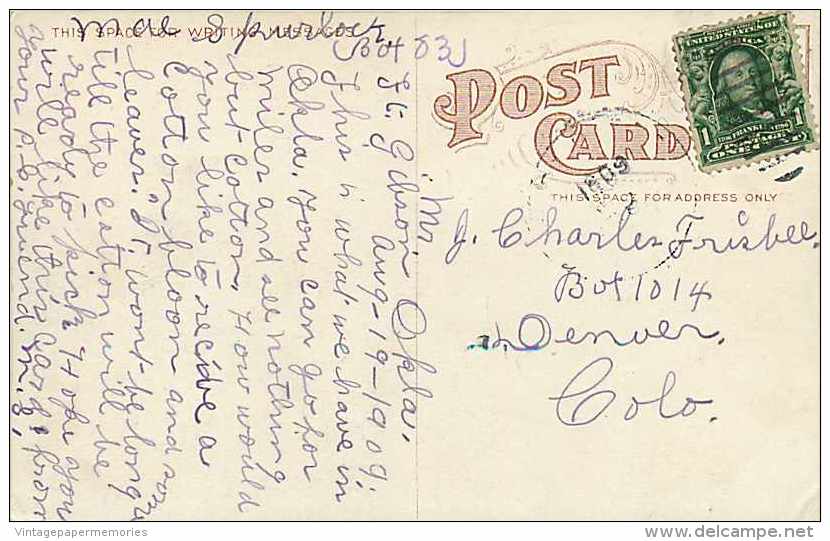 Mae Spurlock
THIS SPACE FOR WRITING MESSAGES
Box 83
Ft. Gibson, Okla.
Aug-19-1909.
This is what we have in
Okla. You can go for
miles and see nothing
but cotton, How would
you like to recieve a
Cotton bloom and some
leaves. It wont be long
till the cotton will be
ready to pick. Hope you
will like this card. from
Your P.C. friend. M.S.
POST
CARD
THIS SPACE FOR ADDRESS ONLY
UNITED STATES OF
AMERICA
1
FRANKLIN
POSTAGE
ONE CENT
1909
Mr.
J. Charles Frisbee.
Box 1014
Denver,
Colo.
Vintagepapermemories
delcampe.net